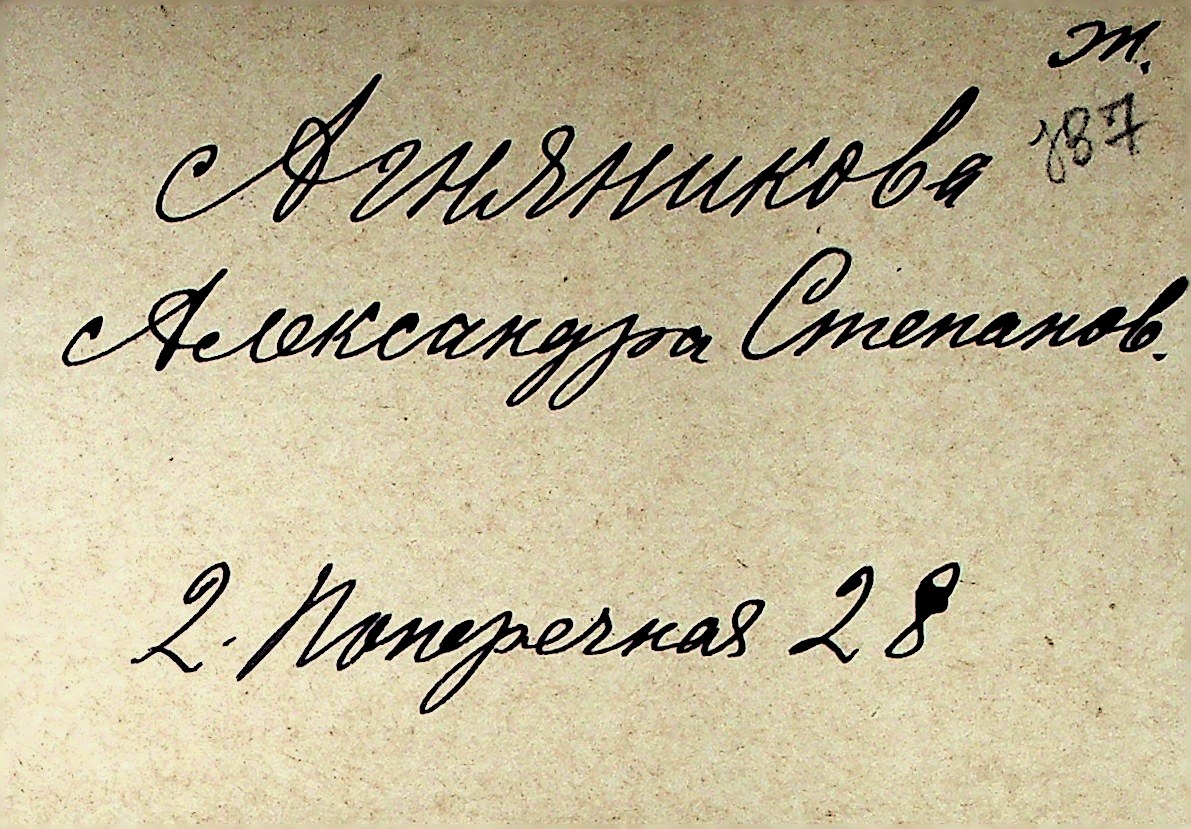 т.
187
Агняникова
Александра Степанов.
2. Поперечная 28